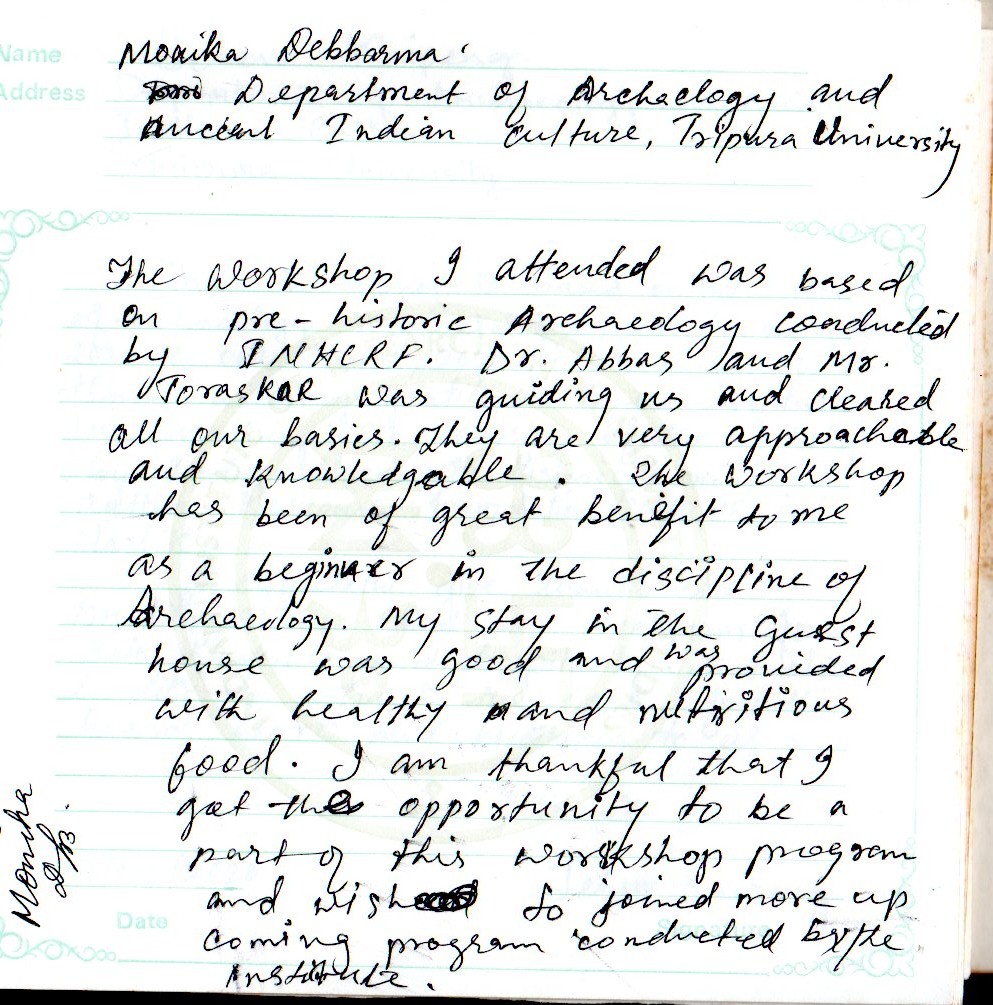 Name
Monika Debbarma
Address
Department of Archaelogy and
Ancient Indian Culture, Tripura University
The Workshop I attended was based
on pre-historic Archaeology conducted
by INHCRF. Dr. Abbas and Mr.
Toraskar was guiding us and cleared
all our basics. They are very approachable
and knowledgeable. The workshop
has been of great benifit to me
as a beginner in the discipline of
Archaeology. My stay in the Guest
house was good and was provided
with healthy and nutiritious
food. I am thankful that I
get the opportunity to be a
part of this workshop program
and wish to joined more up
coming program conducted by the
institute.
Monika
DB
Date